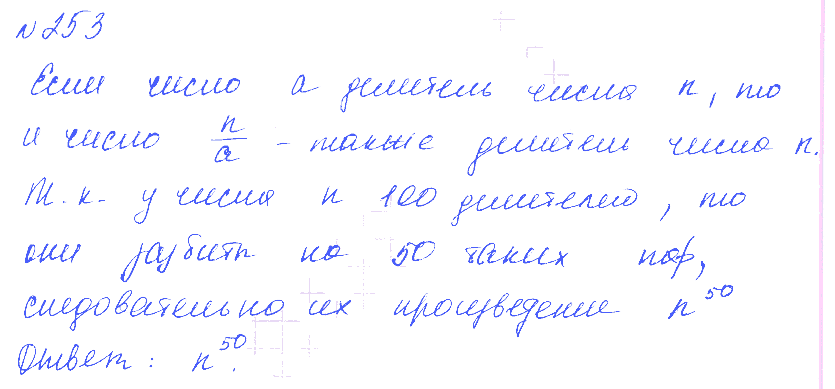 №253
Если число a делитель числа n, то
и число n/a - также делитель числа n.
Т.к. у числа n 100 делителей, то
они разбиты на 50 таких пар,
следовательно их произведение n^50
Ответ: n^50.